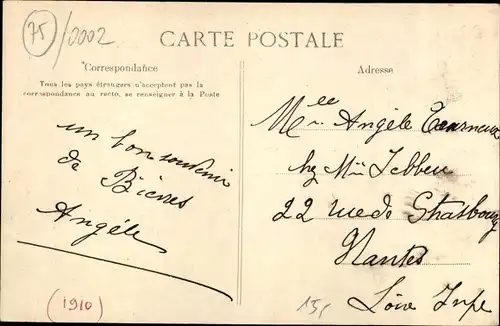 75/0002
CARTE POSTALE
Correspondance
Tous les pays étrangers n'acceptent pas la
correspondance au recto, se renseigner à la Poste
un bon souvenir
de Bièvres
Angèle
(1910)
Adresse
Melle Angèle
22 rue de Strasbourg
Nantes
Loire Infre
15,